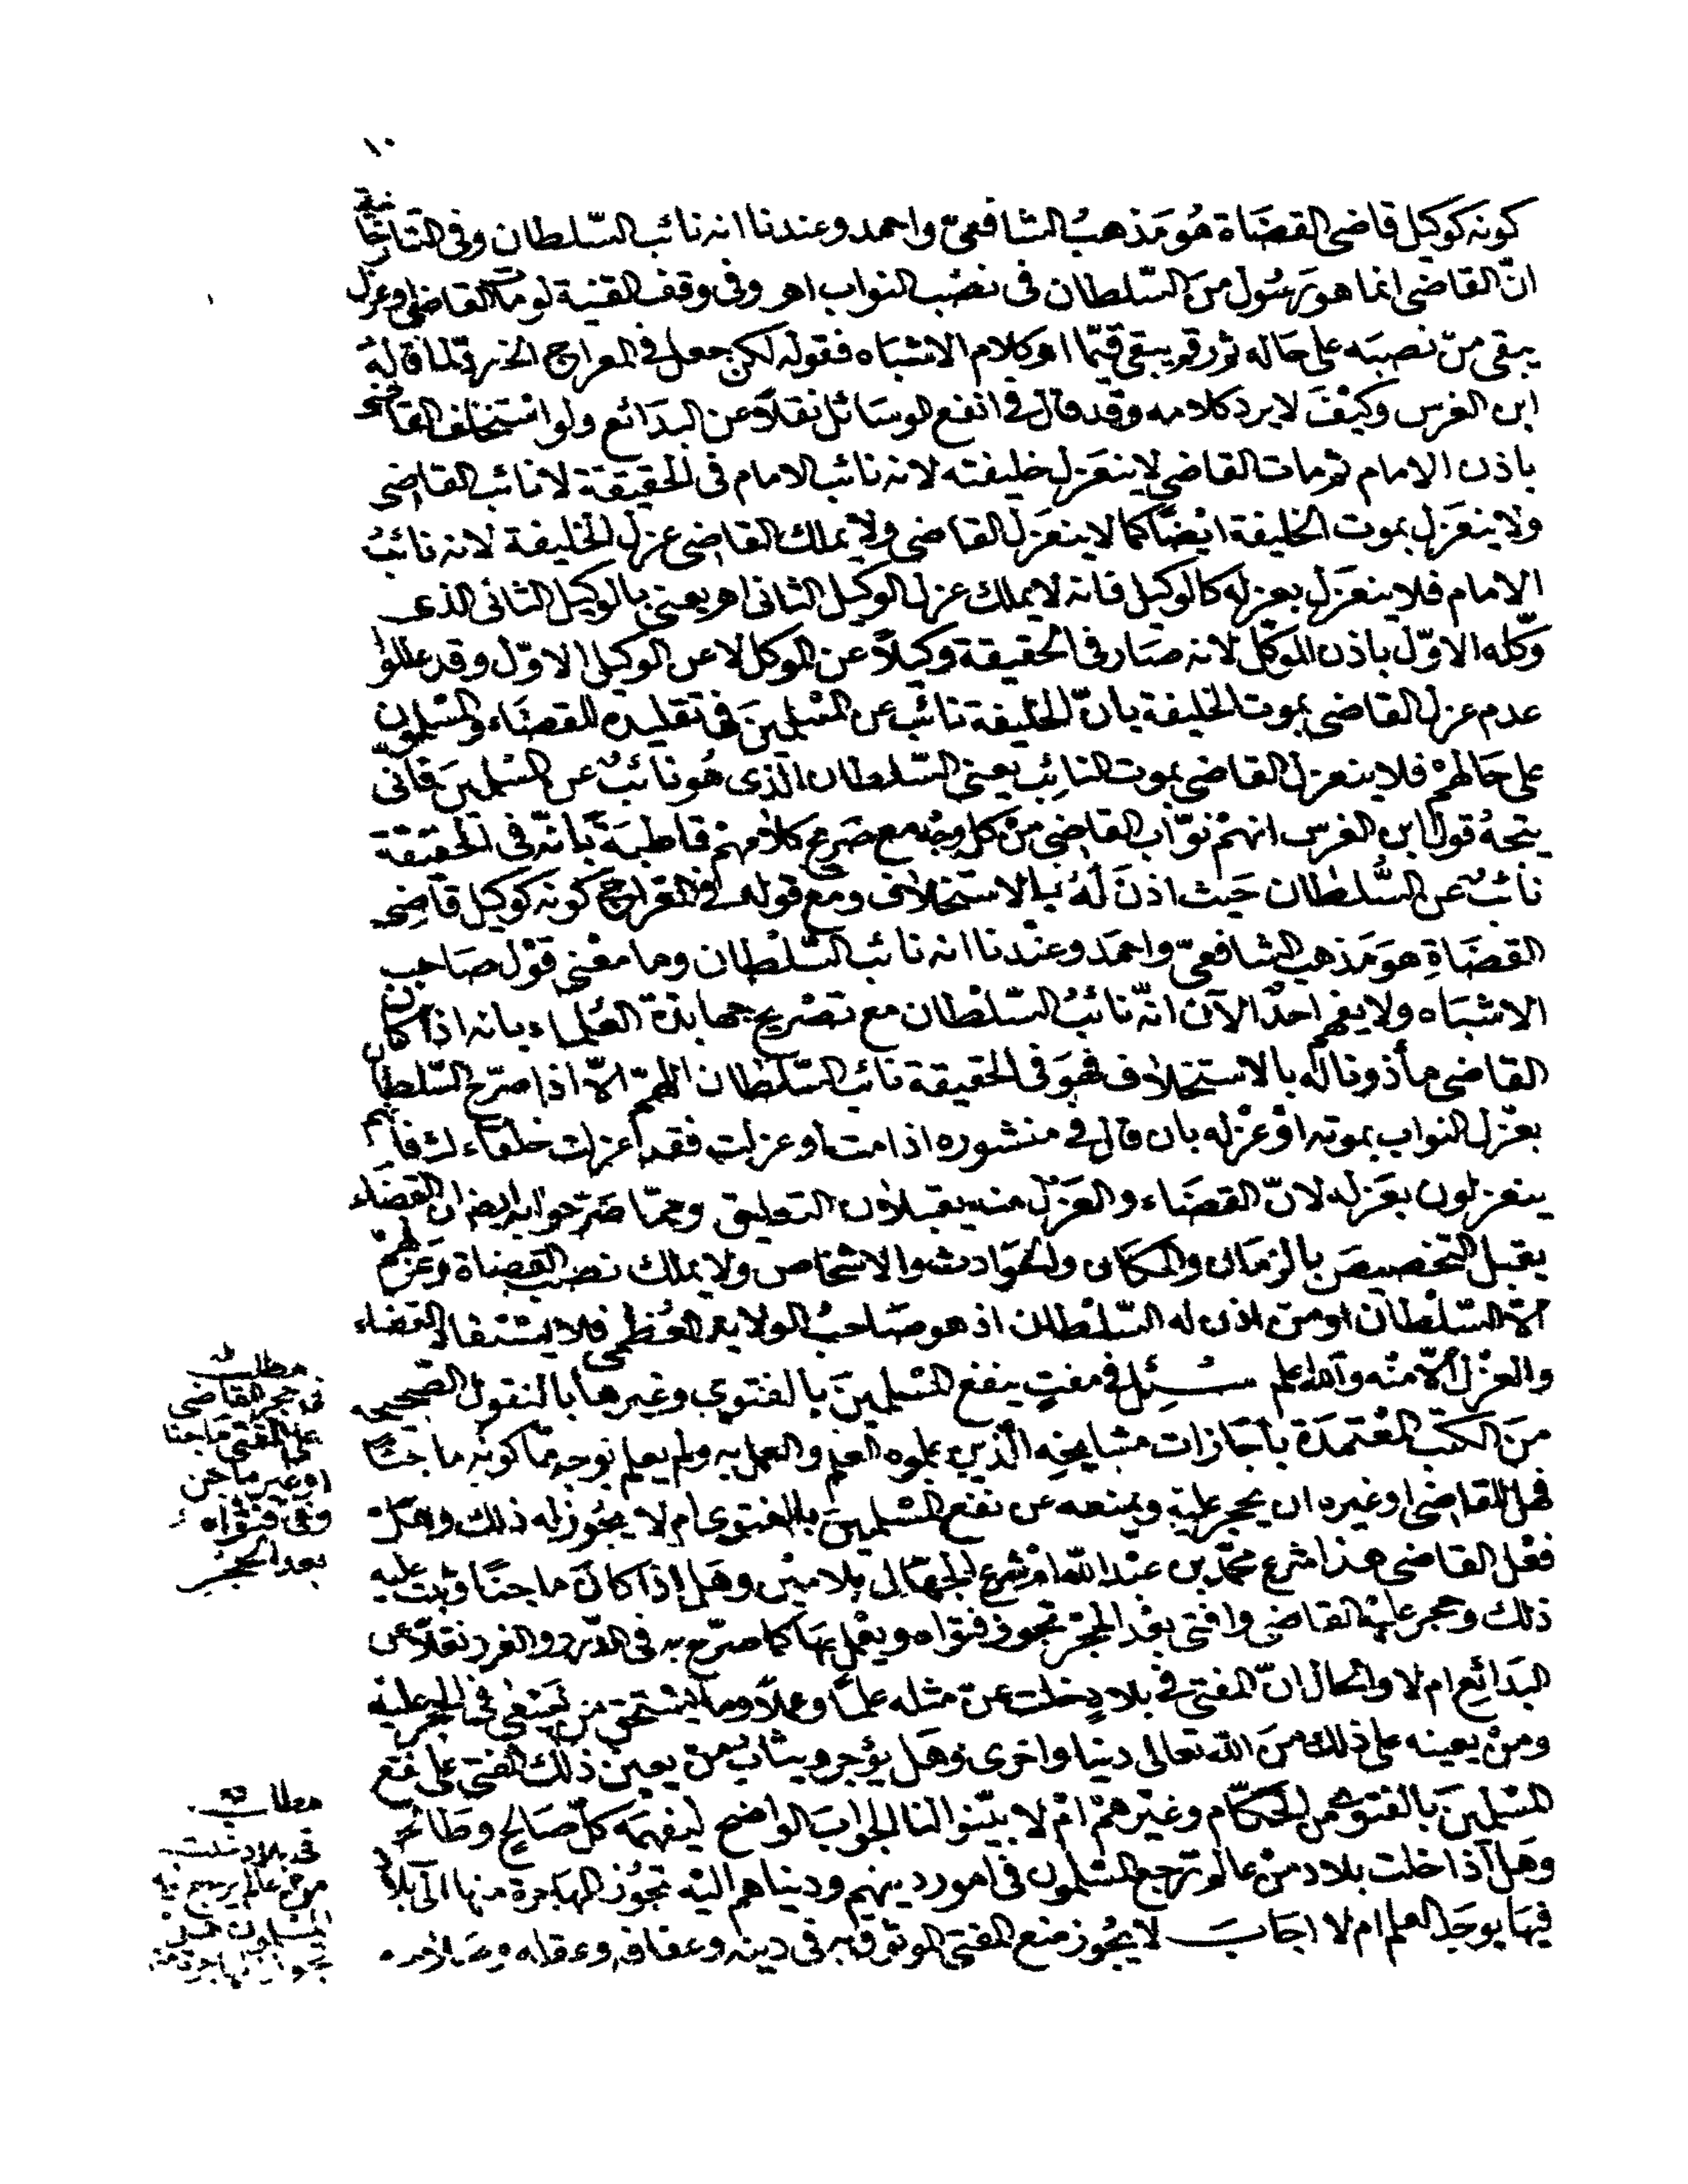 ١٠
كونه كوكيل قاضى القضاة هو مذهب الشافعىّ واحمد وعندنا انه نائب السّلطان وفى التتارخانية
انّ القاضى انما هو رسول من السّلطان فى نصب النواب اهـ وفى وقف القنية لو مات القاضى او عزل
يبقى من نصبه على حاله ثم رقم يبقى قيّما اهـ كلام الاشباه فقوله لكن جعل فى المعراج الخ ردّ لما قاله
ابن الغرس وكيف لا يرد كلامه وقد قال فى انفع الوسائل نقلاً عن البدائع ولو استخلف القاضى
باذن الامام ثم مات القاضى لا ينعزل خليفته لانه نائب الامام فى الحقيقة لا نائب القاضى
ولا ينعزل بموت الخليفة ايضًا كما لا ينعزل القاضى ولا يملك القاضى عزل الخليفة لانه نائبُ
الامام فلا ينعزل بعزله كالوكيل فانه لا يملك عزل الوكيل الثانى اهـ يعنى بالوكيل الثانى الذى
وكّله الاوّل باذن الموكّل لانه صار فى الحقيقة وكيلاً عن الموكل لا عن الوكيل الاوّل وقد عللوا
عدم عزل القاضى بموت الخليفة بانّ الخليفة نائب عن المسلمين فى تقليده القضاء والمسلمون
على حالهم فلا ينعزل القاضى بموت النائب يعنى السّلطان الذى هو نائبٌ عن المسلمين فانى
يتجهُ قول ابن الغرس انهم نوّاب القاضى من كل وجه مع صريح كلامهم قاطبةً بانّه فى الحقيقة
نائبٌ عن السُّلطان حيث اذن لهُ بالاستخلاف ومع قوله فى المعراج كونه كوكيل قاضى
القضاةِ هو مذهب الشافعىّ واحمد وعندنا انه نائب السّلطان وما معنى قول صاحب
الاشباه ولا يفهم احدٌ الآن انّه نائبُ السّلطان مع تصريح جهابذة العلماء بانه اذا كان
القاضى مأذونا له بالاستخلاف فهو فى الحقيقة نائب السّلطان اللهمّ الاّ اذا صرّح السّلطان
بعزل النواب بموته او عزله بان قال فى منشوره اذا مت او عزلت فقد عزلت خلفاءك فانهم
ينعزلون بعزله لانّ القضاء والعزل منه يقبلان التعليق وممّا صرّحوا به ايضا ان القضاء
يقبل التخصيص بالزمان والمكان والحوادث والاشخاص ولا يملك نصب القضاة وعزلهم
الاّ السّلطان او من اذن له السّلطان اذ هو صاحبُ الولاية العُظمى فلا يستفاد القضاء
والعزل الاّ منه والله اعلم سُئِل فى مفتٍ ينفع المسلمين بالفتوى وغيرها بالنقول الصّحيحه
من الكتب المعتمدة باجازات مشايخه الّذين علموه العلم والعمل به ولم يعلم بوجهٍ مّا كونه ماجنًا
فهل للقاضى او غيره ان يحجر عليه ويمنعه عن نفع المسلمين بالفتوى ام لا يجوز له ذلك وهل
فعل القاضى هذا شرع محمّد بن عبد الله ام شرع الجهّال بلا مين وهل اذا كان ماجنًا وثبت عليه
ذلك وحجر عليه القاضى وافتى بعد الحجر تجوز فتواه ويعمل بها كما صرّح به فى الدّرر والغرر نقلاً عن
البدائع ام لا والحال انّ المفتى فى بلادٍ خلت عن مثله علمًا وعملاً وما يستحق من يسعى فى الحجر عليه
ومن يعينه على ذلك من الله تعالى دنيا واخرى وهل يؤجر ويثاب من يعين ذلك المفتى على نفع
المسلمين بالفتوى من الحكّام وغيرهم ام لا بيّنوا لنا الجواب الواضح ليفهمه كلّ صالح وطالح
وهل اذا خلت بلاد من عالم ترجع المسلمون فى امور دينهم ودنياهم اليه تجوز المهاجرة منها الى بلاد
فيها يوجد العلم ام لا اجاب لا يجوز منع المفتى الموثوق به فى دينه وعفافه وعقله وصلاحه
مطلب
فى حجر القاضى
على المفتى ماجنا
او غير ماجن
وفى فتواه
بعد الحجر
مطلب
فى بلاد خلت
من عالم يرجع اليه
المسلمون هل
تجوز المهاجرة منها